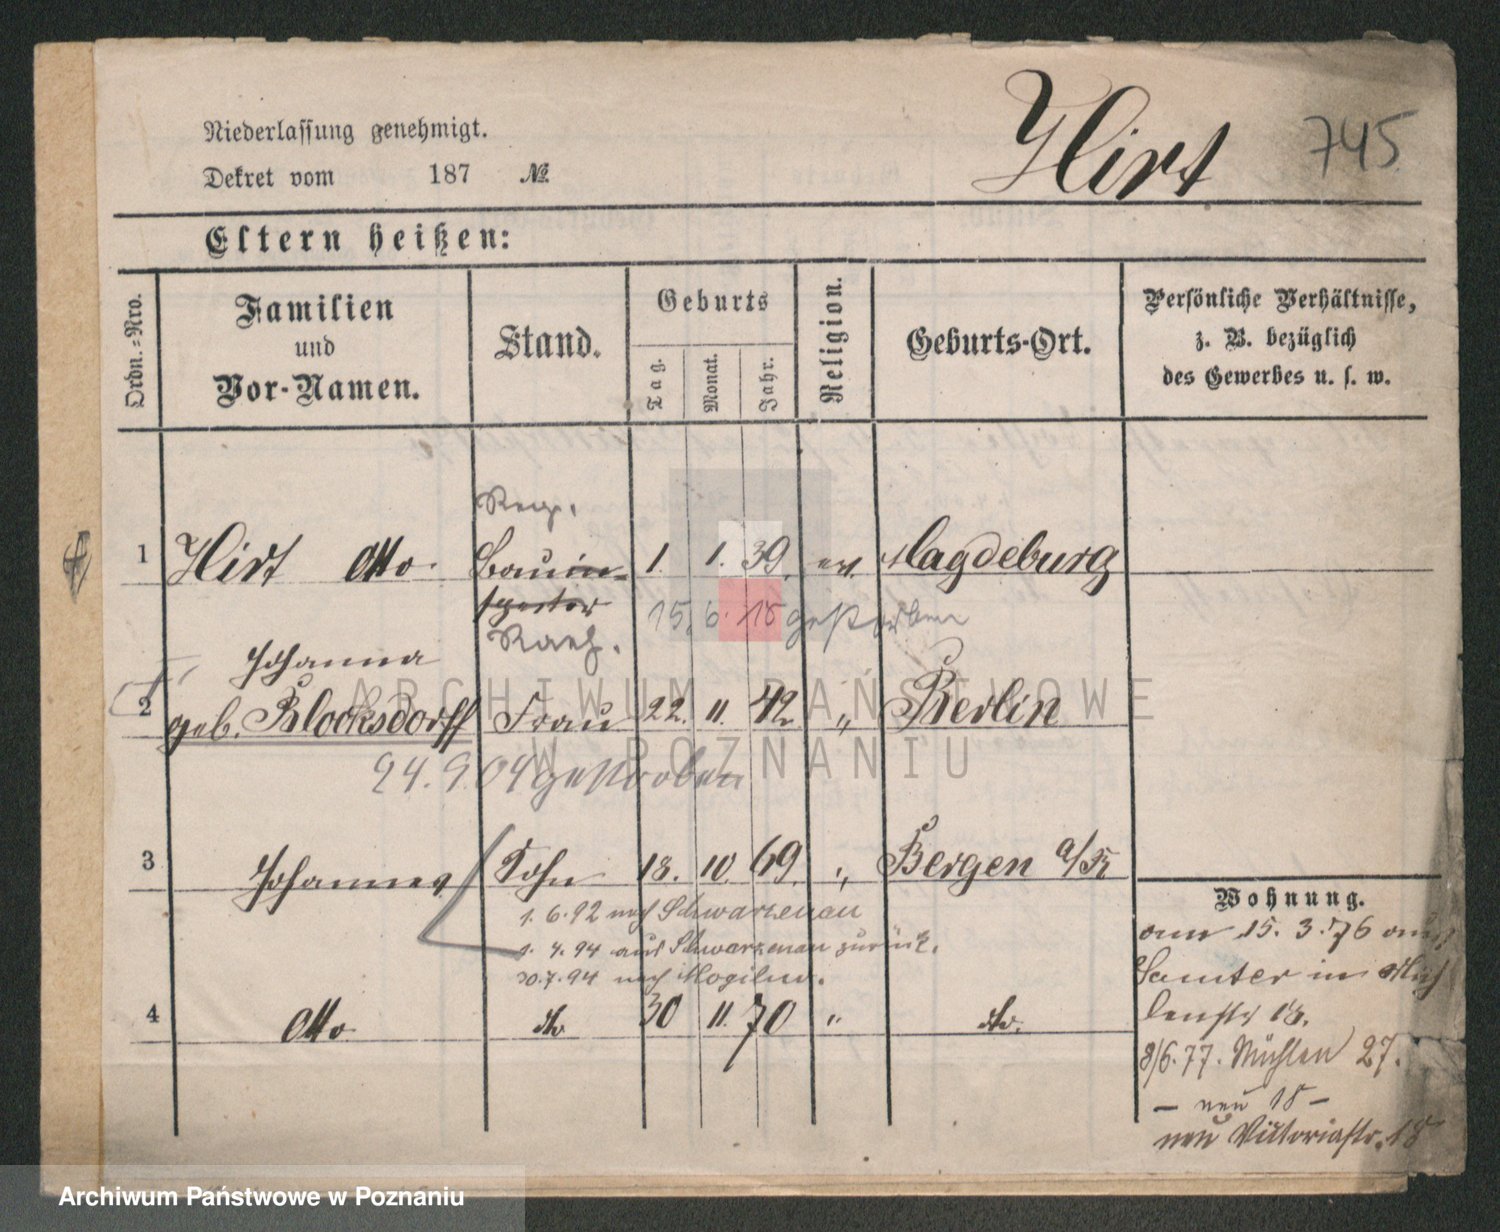 Hirt 745
Niederlassung genehmigt.
Dekret vom 187 №
Eltern heißen:
Ordn.-Nro.
Familien
und
Vor-Namen.
Stand.
Geburts
Tag.
Monat.
Jahr.
Religion.
Geburts-Ort.
Persönliche Verhältnisse,
z. B. bezüglich
des Gewerbes u. s. w.
Reg.
1 Hirt Otto Bauin- 1. 1. 39. ev. Magdeburg
spector 15. 6. 15 gestorben
Rath.
Johanna
2 geb. Blocksdorff Frau 22. 11. 42 " Berlin
24. 9. 04 gestorben
3 Johannes Sohn 18. 10. 69. " Bergen a/R
1. 6. 92 nach Schwarzenau
1. 4. 94 aus Schwarzenau zurück.
30. 7. 94 nach Mogilno.
4 Otto do 30 11. 70 " do.
Wohnung.
am 15. 3. 76 aus
Samter in Müh
lenstr 18.
8/6. 77. Mühlen 27.
— neu 18 —
neu Victoriastr. 18
ARCHIWUM PAŃSTWOWE
W POZNANIU
Archiwum Państwowe w Poznaniu